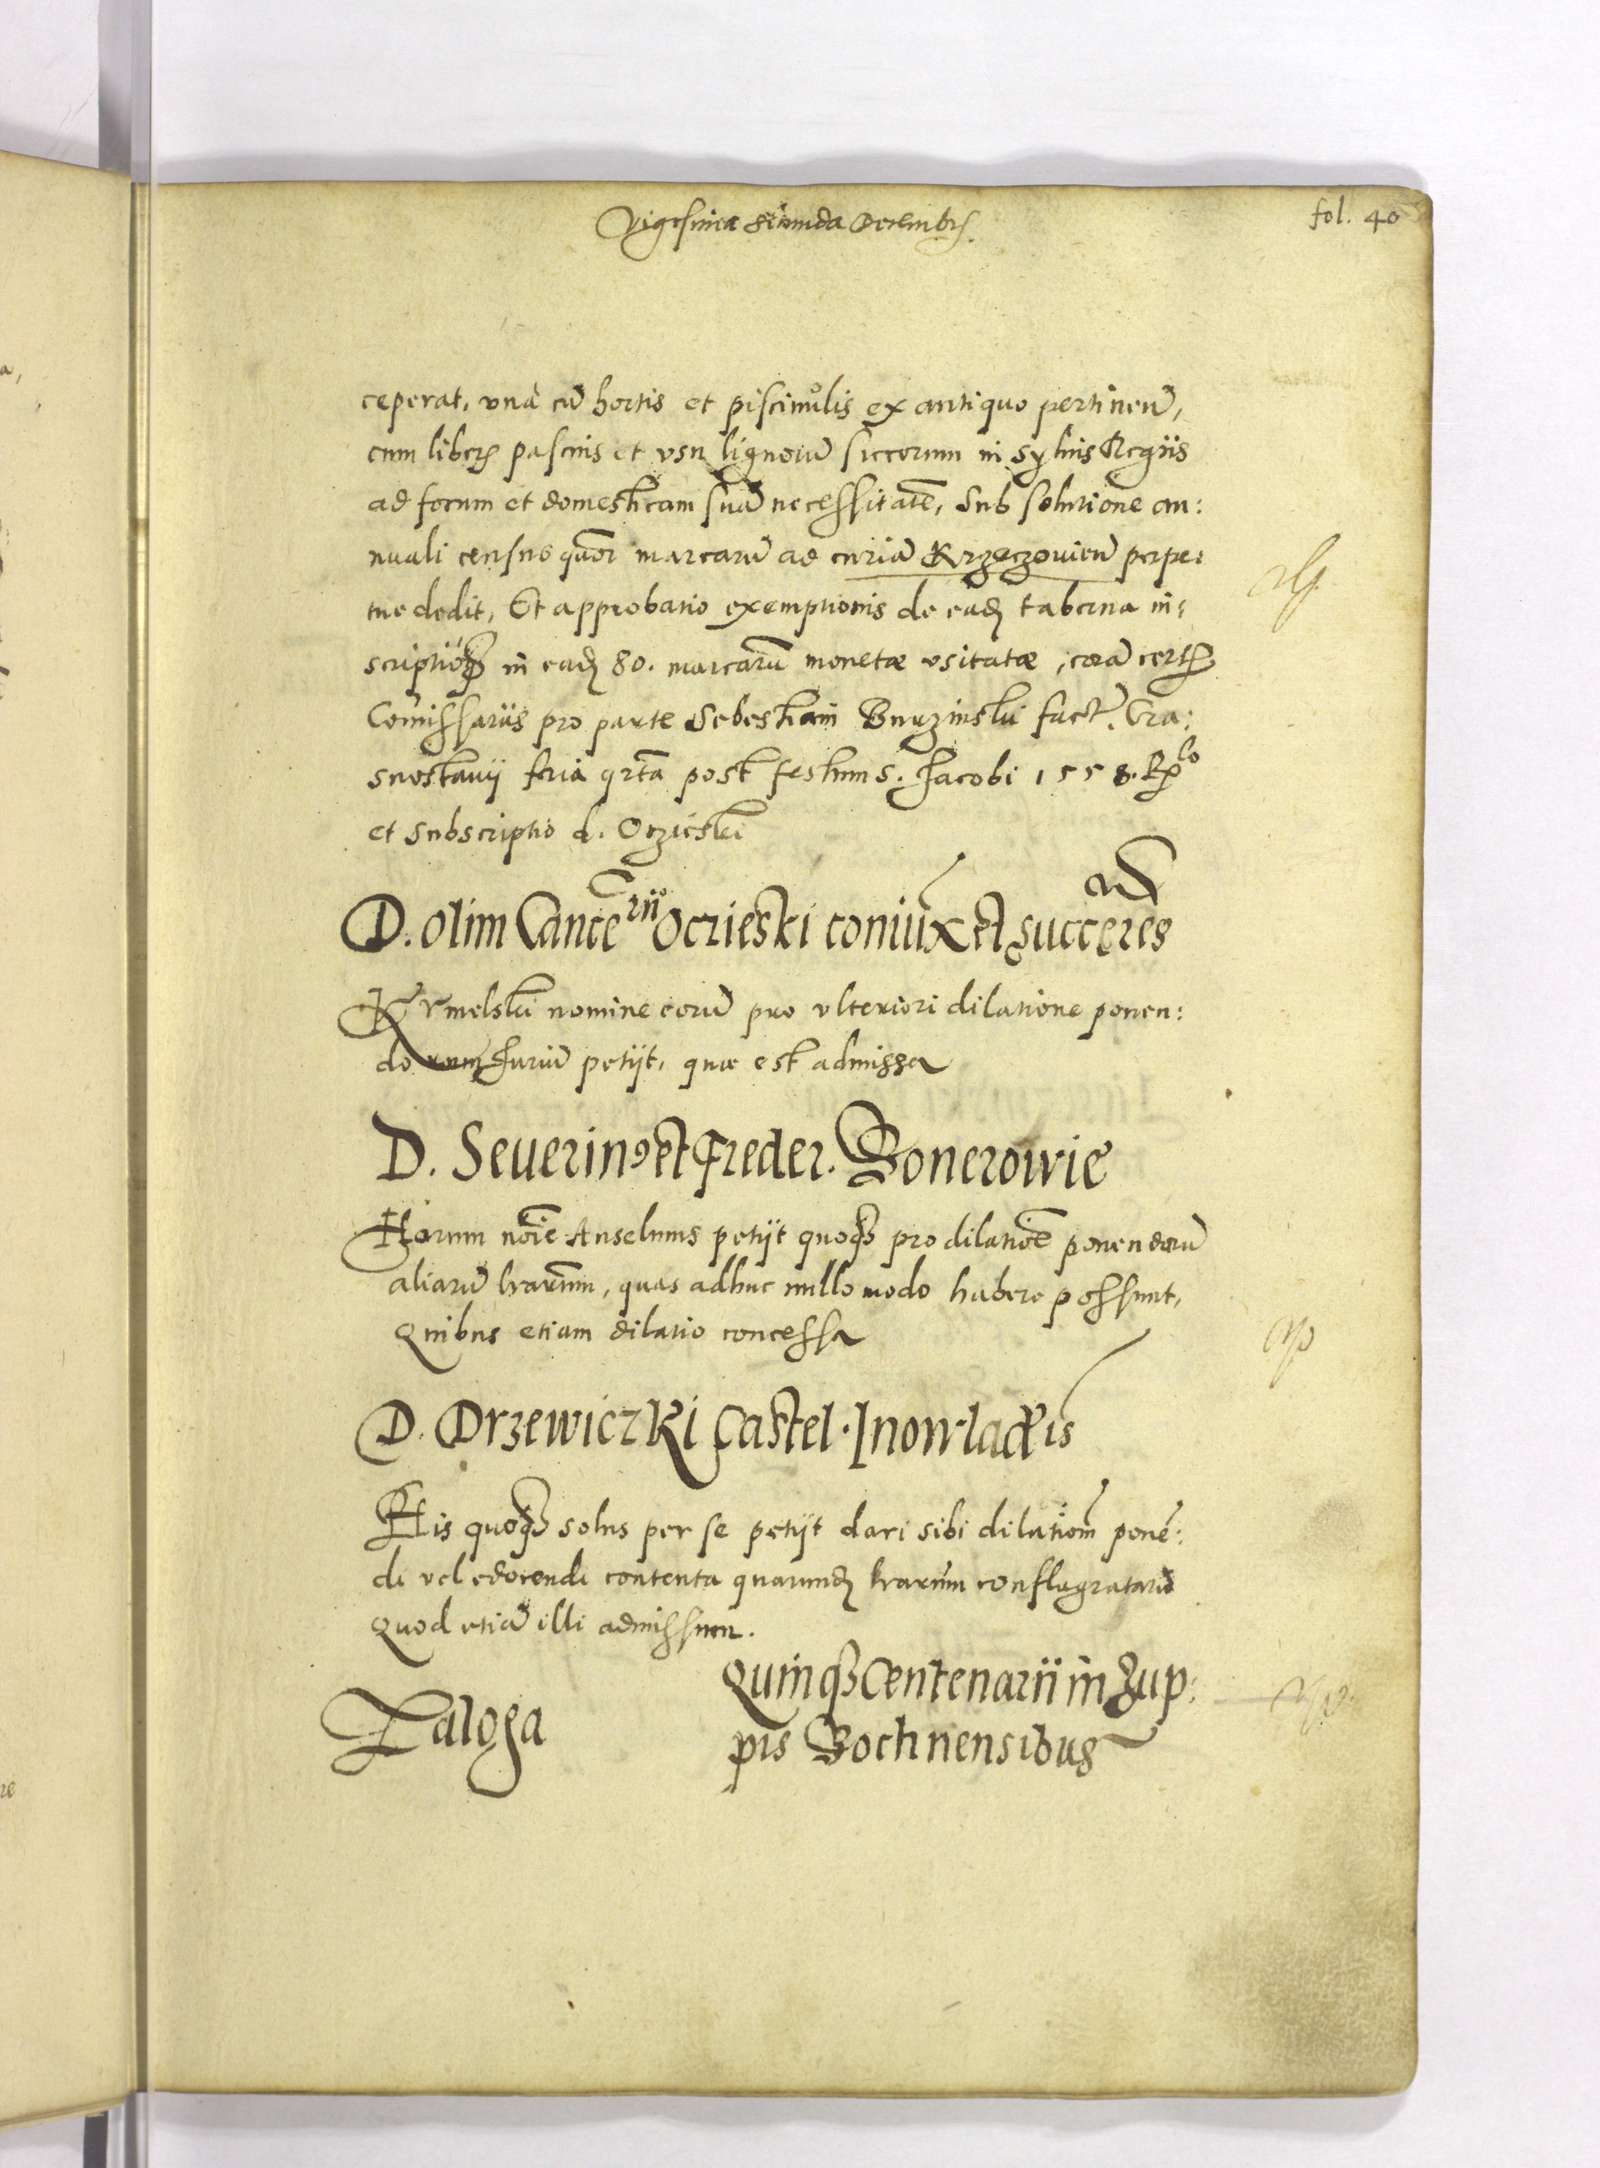 Vigesima secunda Decembris
fol. 40
ceperat, vnà cũ hortis et piscinulis ex antiquo pertineñ,
cum liberis pascuis et vsu lignorũ siccorum in syluis Regiis
ad focum et domesticam suã necessitatẽ, Sub solutione an:
nuali census quor marcarũ ad curiã Krzeczouieñ perpe:
tue dedit, Et approbatio exemptionis de eadẽ taberna in:
scriptioq3 in eadẽ 80. marcarũ monetæ vsitatæ, corã certis
Com̃issariis pro parte Sebestiani Buczinski fact. Cra:
snostauij feria qrta post festum S. Jacobi 1558.
et subscriptio d. Oczieski
D. olim Cancerii Oczieski coniũx et succeres
Krmelski nomine eorũ pro vlteriori dilatione ponen:
do Juriũ petijt, quæ est admissa
D. Seuerin9 et Freder. Bonerowie
Horum noĩe Anselmus petijt quoq3 pro dilatiõe ponendorũ
aliarũ lrarum, quas adhuc nullo modo habere possunt,
Quibus etiam dilatio concessa
D. Drzewiczki Castel. Inowladis
His quoq3 solus per se petijt dari sibi dilatiom̃ ponẽ:
di vel edocendi contenta quarundẽ lrarum conflagratarũ
Quod etiã illi admissum.
Quinq3 Centenarii in Zup:
Zaloga
pis Bochnensibus